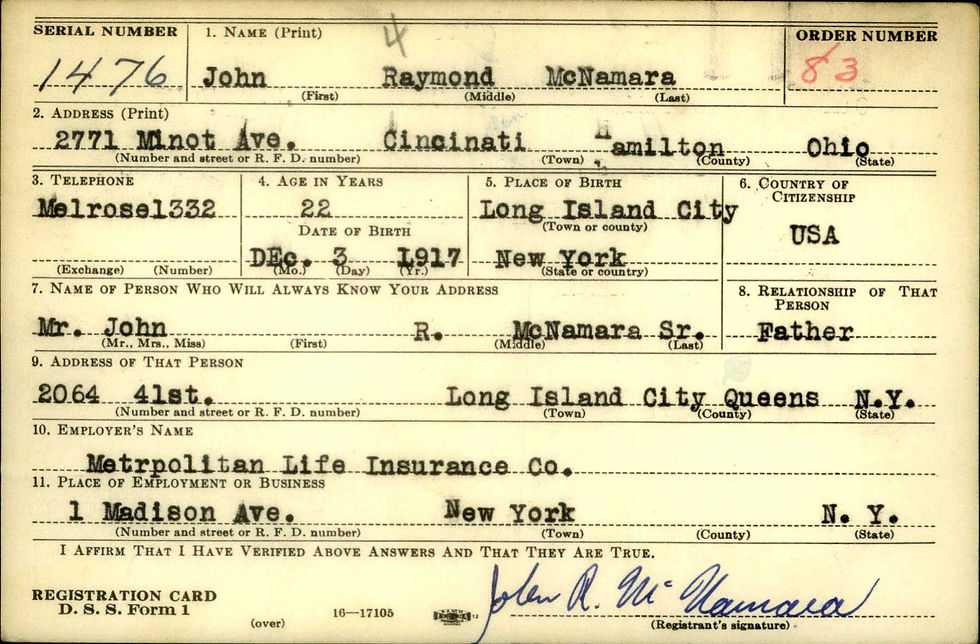 SERIAL NUMBER 1. NAME (Print) 4 ORDER NUMBER
1476 John Raymond McNamara 83
(First) (Middle) (Last)
2. ADDRESS (Print)
2771 Minot Ave. Cincinati Hamilton Ohio
(Number and street or R. F. D. number) (Town) (County) (State)
3. TELEPHONE 4. AGE IN YEARS 5. PLACE OF BIRTH 6. COUNTRY OF CITIZENSHIP
Melrose1332 22 Long Island City USA
DATE OF BIRTH (Town or county)
DEc. 3 1917 New York
(Exchange) (Number) (Mo.) (Day) (Yr.) (State or country)
7. NAME OF PERSON WHO WILL ALWAYS KNOW YOUR ADDRESS 8. RELATIONSHIP OF THAT PERSON
Mr. John R. McNamara Sr. Father
(Mr., Mrs., Miss) (First) (Middle) (Last)
9. ADDRESS OF THAT PERSON
2064 41st. Long Island City Queens N.Y.
(Number and street or R. F. D. number) (Town) (County) (State)
10. EMPLOYER'S NAME
Metrpolitan Life Insurance Co.
11. PLACE OF EMPLOYMENT OR BUSINESS
1 Madison Ave. New York N. Y.
(Number and street or R. F. D. number) (Town) (County) (State)
I AFFIRM THAT I HAVE VERIFIED ABOVE ANSWERS AND THAT THEY ARE TRUE.
REGISTRATION CARD
D. S. S. Form 1 16—17105 John R. McNamara
(over) (Registrant's signature)